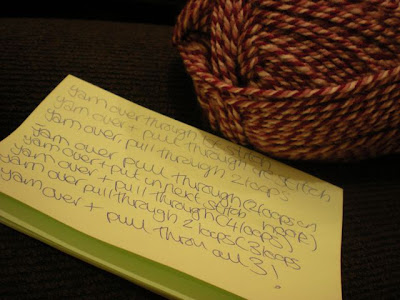 yarn over through stitch
yarn over + pull through stitch
yarn over pull through 2 loops
yarn over pull through (2 loops on
yarn over + put in next stitch hoop)
yarn over + pull through (4 loops)
yarn over pull through 2 loops (3 loops
yarn over + pull throu all 3!